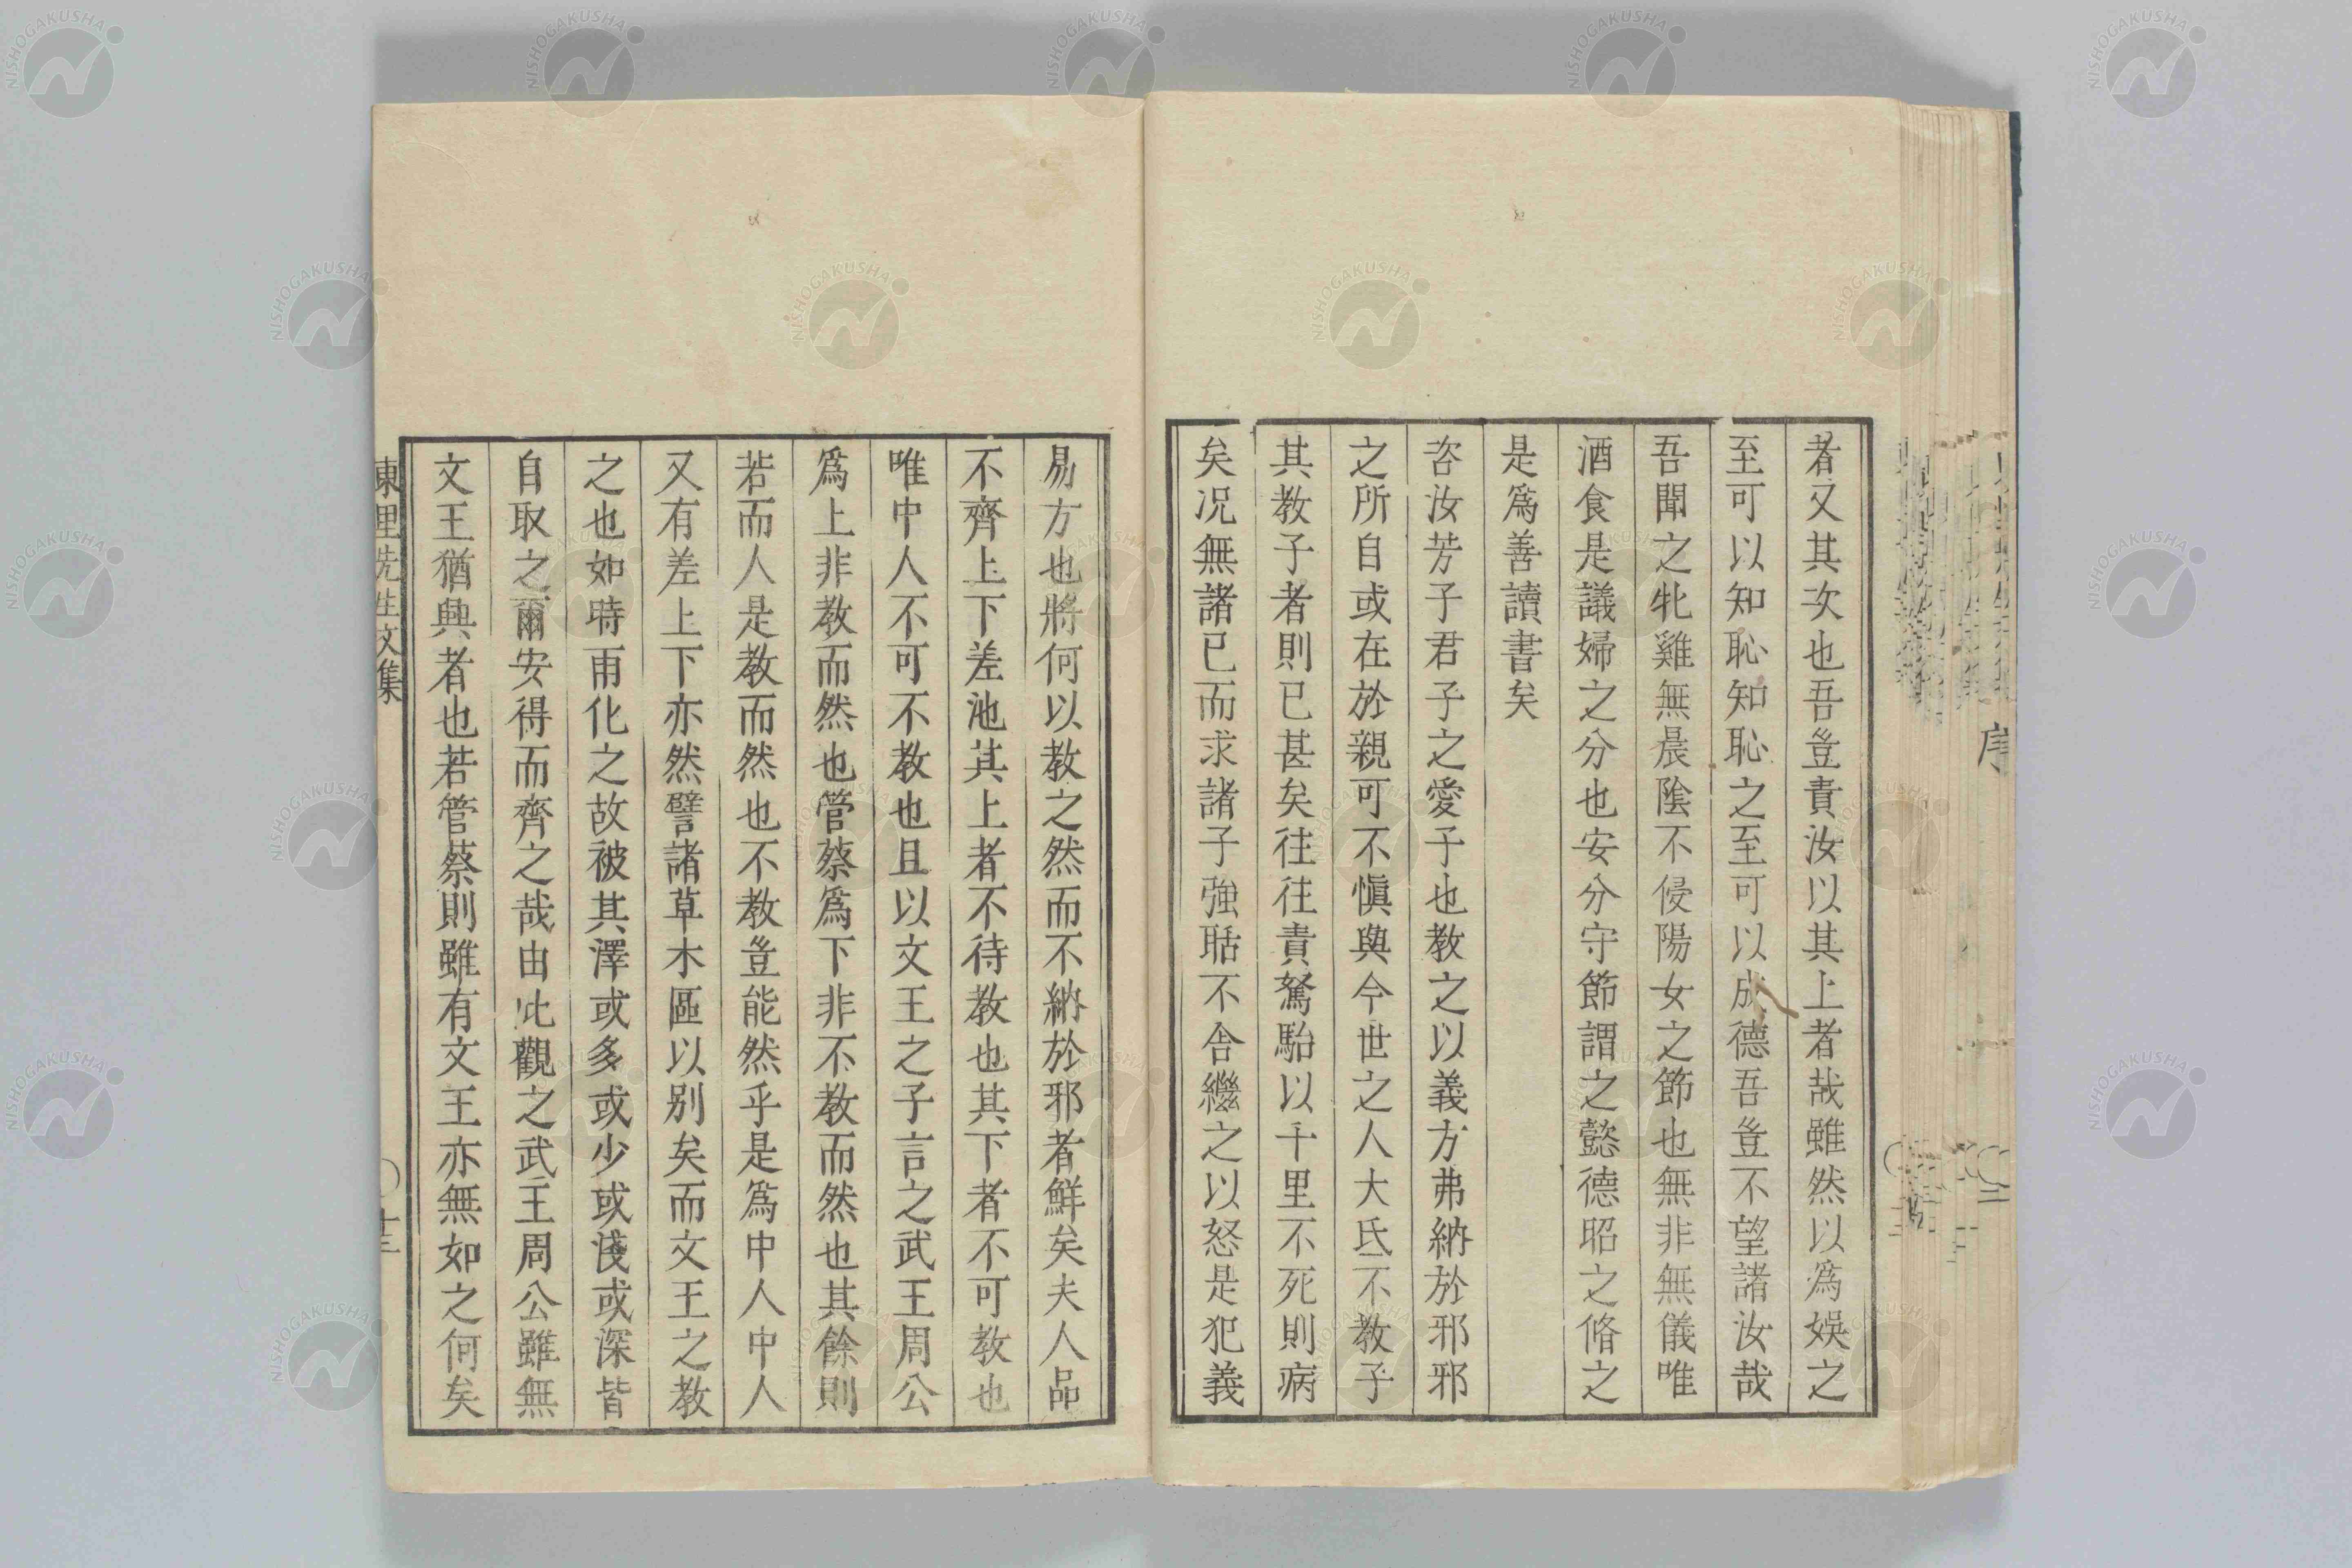 者又其次也吾豈責汝以其上者哉雖然以為娛之
至可以知恥知恥之至可以成德吾豈不望諸汝哉
吾聞之牝雞無晨陰不侵陽女之節也無非無儀唯
酒食是議婦之分也安分守節謂之懿德昭之脩之
是爲善讀書矣
咨汝芳子君子之愛子也教之以義方弗納於邪邪
之所自或在於親可不愼與今世之人大氐不教子
其教子者則已甚矣往往責駑駘以千里不死則病
矣况無諸已而求諸子強聒不舎繼之以怒是犯義
易方也將何以教之然而不納於邪者鮮矣夫人品
不齊上下差池其上者不待教也其下者不可教也
唯中人不可不教也且以文王之子言之武王周公
爲上非教而然也管蔡爲下非不教而然也其餘則
若而人是教而然也不教豈能然乎是爲中人中人
又有差上下亦然譬諸草木區以别矣而文王之教
之也如時雨化之故被其澤或多或少或淺或深皆
自取之爾安得而齊之哉由此觀之武王周公雖無
文王猶興者也若管蔡則雖有文王亦無如之何矣
東里先生文集
十三
序
NISHOGAKUSHA